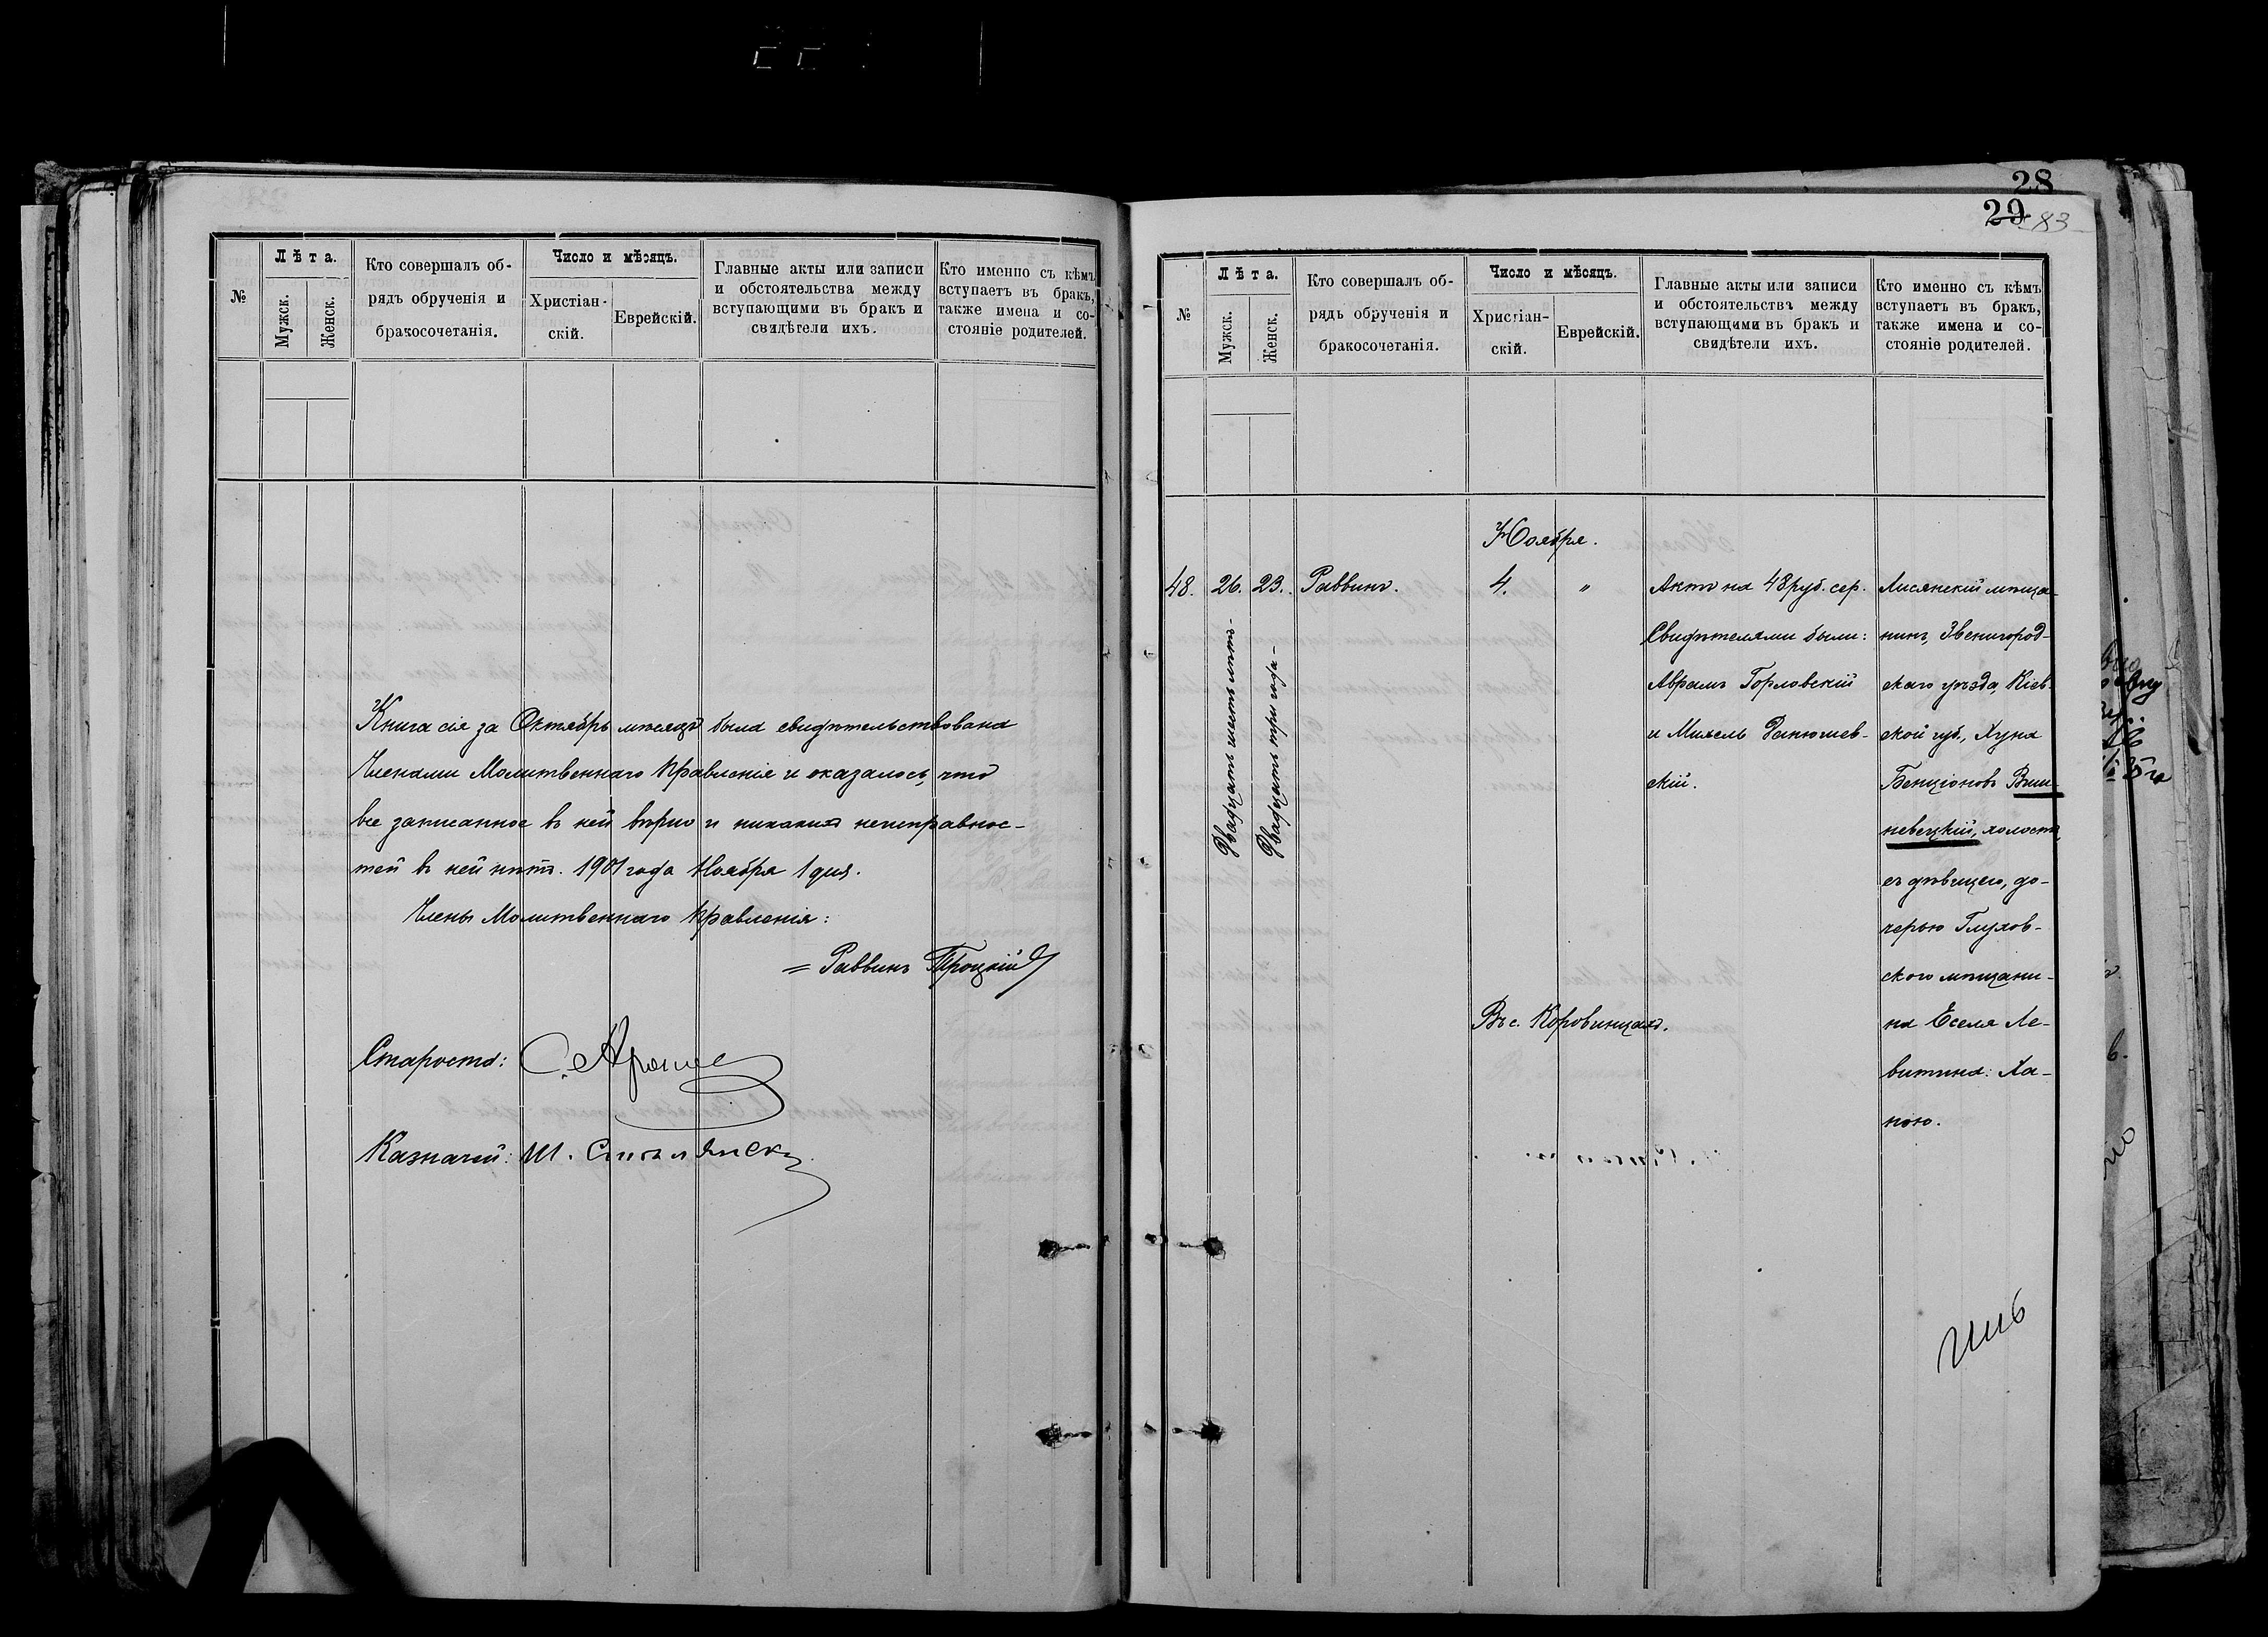 №
Лѣта.
Мужск.
Женск.
Кто совершалъ об-
рядъ обрученія и
бракосочетанія.
Число и мѣсяцъ.
Христіан-
скій.
Еврейскій.
Главные акты или записи
и обстоятельства между
вступающими въ бракъ и
свидѣтели ихъ.
Кто именно съ кѣмъ
вступаетъ въ бракъ,
также имена и со-
стояніе родителей.
Книга сія за Октябрь мѣсяцъ была свидѣтельствована
Членами Молитвеннаго Правленія и оказалось, что
все записанное въ ней вѣрно и никакихъ неисправнос-
тей въ ней нѣтъ. 1901 года Ноября 1 дня.
Члены Молитвеннаго Правленія:
= Раввинъ Троцкій
Староста:
Казначей: Ш.
28
29
83
№
Лѣта.
Мужск.
Женск.
Кто совершалъ об-
рядъ обрученія и
бракосочетанія.
Число и мѣсяцъ.
Христіан-
скій.
Еврейскій.
Главные акты или записи
и обстоятельства между
вступающими въ бракъ и
свидѣтели ихъ.
Кто именно съ кѣмъ
вступаетъ въ бракъ,
также имена и со-
стояніе родителей.
Ноября.
48.
26.
Двадцать шесть лѣтъ-
23.
Двадцать три года-
Раввинъ.
4.
"
Въ с. Коровинцахъ.
Актъ на 48 руб. сер.
Свидѣтелями были:
Аврамъ Горловскій
и Михель
скій.
Лисянскій мѣща-
нинъ, Звенигород-
скаго уѣзда, Кіев-
ской губ., Хуна
Бенціоновъ Виш-
невецкій, холостъ,
съ дѣвицею, до-
черью Глухов-
ского мѣщани-
на Еселя Ле-
витина: Ха-
ною.